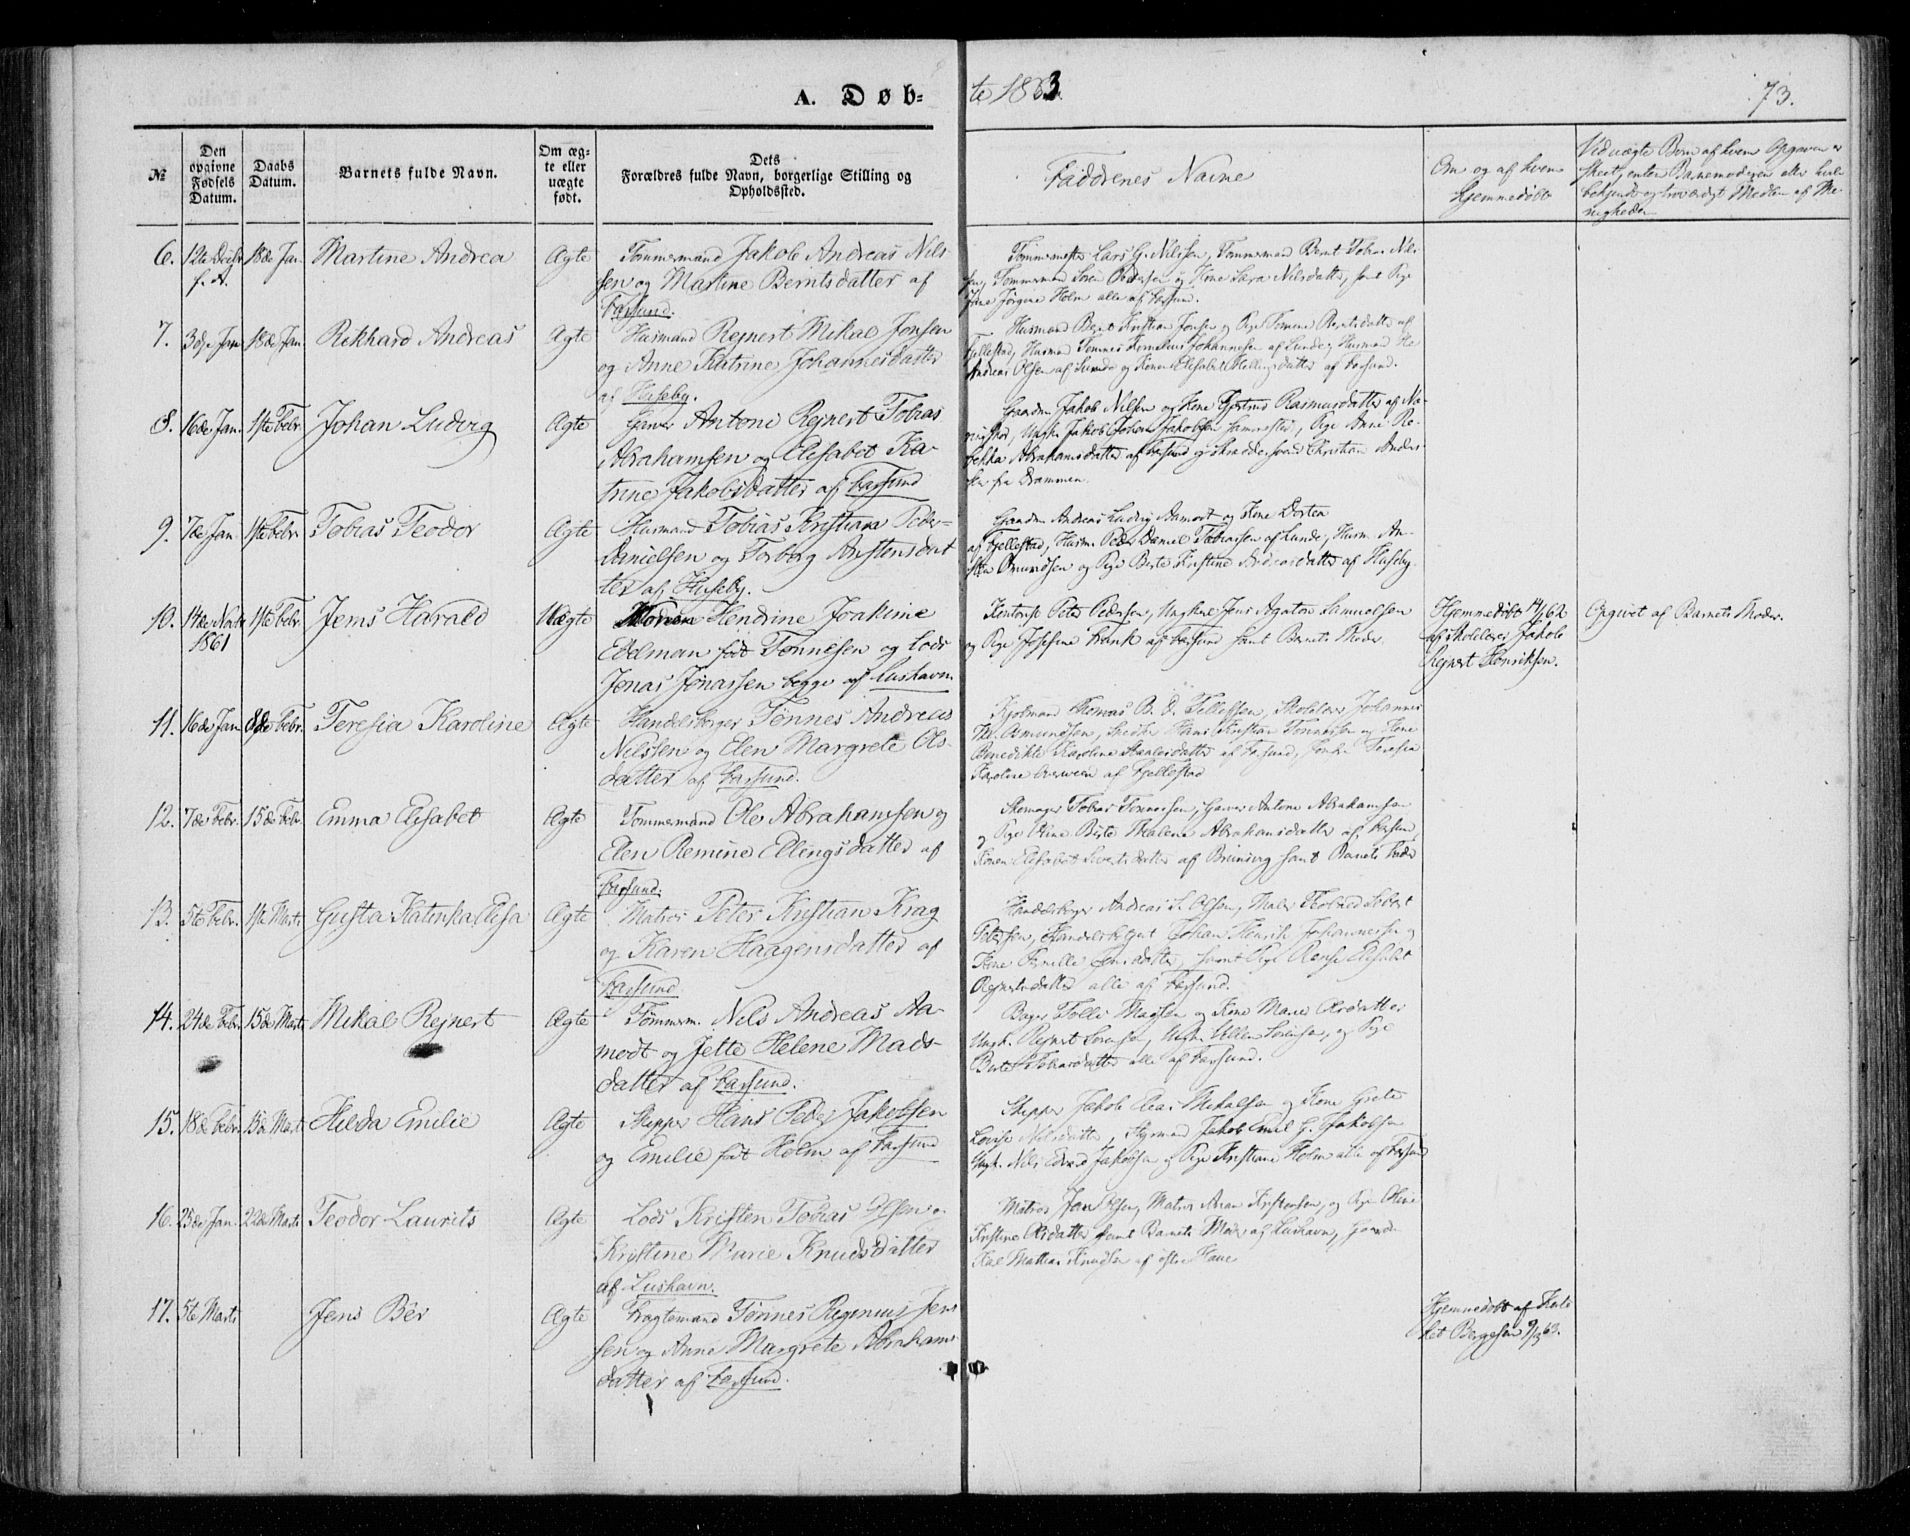 A. Døb-
te 1863
73.
No
Den opgivne Fødsels Datum.
Daabs Datum.
Barnets fulde Navn.
Om ægte eller uægte født.
Dets Forældres fulde Navn, borgerlige Stilling og Opholdssted.
Faddrenes Navne
Om og af hvem Hjemmedøbt
Ved uægte Børn af hvem Opgaven er
skeet, enten Barnemoderen eller
bekjendt og troværdigt Medlem af Me-
nigheden
6. 12te Decbr f. A. 18de Jan. Martine Andrea Ægte
Tømmermand Jakob Andreas Nils-
sen og Martine Berntsdatter af
Farsund.
Tømmermester Lars G. Nilssen, Tømmermand Bernt Tobias Nils-
sen, Tømmermand Søren Pedersen og Kone Sara Nilsdatter, samt Pige
Jørgine Holm alle af Farsund.
7. 3die Jan. 18de Jan. Rikhard Andreas Ægte
Husmand Rejnert Mikal Jonsen
og Anne Katrine Johannesdatter
af Huseby.
Husmand Bernt Kristian Jonsen og Pige Tomine Berntsdatter af
Fjellestad, Husmand Tønnes Johannesen af Lunde, Husmand
Andreas Olsen af Sunde og Konen Elisabet Ellingsdatter af Farsund.
8. 16de Jan. 1ste Febr. Johan Ludvig Ægte
Garver Antoni Rejnert Tobias
Abrahamsen og Elisabet Ka-
trine Jakobsdatter af Farsund
Gaardm. Jakob Nilsen og Kone Gjertrud Rasmusdatter af
Ungk. Jakob Johan Jakobsen sammested, Pige Anne Re-
bekka Abrahamsdatter af Farsund og Skræddersvend Christian
fra Drammen.
9. 7de Jan. 1ste Febr. Tobias Teodor Ægte
Husmand Tobias Kristian Peder
Danielsen og Torborg Anstensdat-
ter af Huseby.
Gaardm. Andreas Ludvig Aamodt og Kone Dortea
af Fjellestad, Husm. Peder Daniel Tobiassen af Lunde, Husm. An-
sten Omundsen og Pige Berte Kristine Andreasdatter af Huseby.
10. 14de Novbr 1861 1ste Febr. Jens Harald Uægte
Hendrine Joakime
Edelman født Tønnesen og Lods
Jonas Jonassen begge af Lushavn
Kontorist Peter Pedersen, Ungkarl Jens Agaton Samuelsen
og Pige Josefine af Farsund samt Barnets Moder.
Hjemmedøbt
af Skolelærer Jakob
Rejnert Henriksen.
Opgivet af Barnets Moder.
11. 16de Jan. 8de Febr. Teresia Karoline Ægte
Handelsborger Tønnes Andreas
Nilssen og Elen Margrete Ols-
datter af Farsund.
Thomas B. O. Tellefsen, Skolelærer Johannes
Th. Osmundsen, Snedker Hans Kristian Tønnessen og Kone
Benedikte Karoline af Farsund, Teresia
Karoline af Fjellestad
12. 7de Febr. 15de Febr. Emma Elisabet Ægte
Tømmermand Ole Abrahamsen og
Elen Remine Ellingsdatter af
Farsund.
Skomager Tobias Tønnessen, Garver Antone Abrahamsen
og Pige Oline Berte Malene Abrahamsdatter af Farsund,
Konen Elisabet Sivertsdatter af Bruuseng samt Barnets Fader
13. 5te Febr. 1ste Marts Gusta Katinka Elisa Ægte
Matros Peter Kristian Krag
og Karen Haagensdatter af
Farsund.
Handelsborger Andreas S. Olssen, Maler
Petersen, Handelsbetjent Johan Henrik Johannessen og
Kone Pernille Jensdatter, samt Pige Elisabet
Rejnertsdatter alle af Farsund.
14. 24de Febr. 15de Marts Mikal Rejnert Ægte
Tømmerm. Nils Andreas Aa-
modt og Jette Helene Mads-
datter af Farsund.
Bager Tolle Madsen og Kone Marie Olsdatter
Ungk. Rejnert Sørensen, Ungk. Sørensen, og Pige
Berte Tobiasdatter alle af Farsund.
15. 18de Febr. 15de Marts Hilda Emilie Ægte
Skipper Hans Peder Jakobsen
og Emilie født Holm af Farsund
Skipper Jakob Elias Mikalsen og Kone Grete
Louise Nilsdatter, Styrmand Jakob Emil G. Jakobsen
Ungk. Nils Edvard Jakobsen og Pige Kristiane Holm alle af Farsund
16. 25de Jan. 22de Marts Teodor Laurits Ægte
Lods Kristen Tobias Olsen o.
Kristine Marie Knudsdatter
af Lushavn.
Matros Jan Olsen, Matros Kristensen, og Pige Oline
Kristine Olsdatter samt Barnets Moder af Lushavn, Gaardm.
Karl Mattias Knudsen af østre Hauge
17. 5te Marts Jens Bêr Ægte
Fragtemand Tønnes Regenius Jens-
sen og Anne Margrete Abrahams-
datter af Farsund.
Hjemmedøbt af
Bergesen 9/3 63.